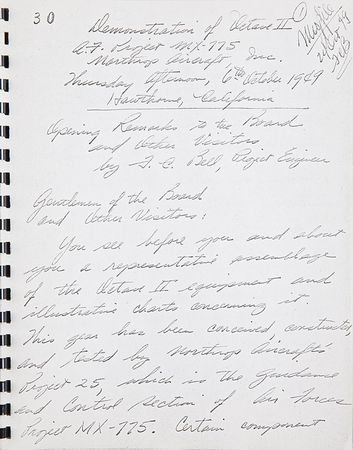 30
Demonstration of Octave II
A.F. Project MX-775
Northrop Aircraft, Inc.
Thursday Afternoon, 6th October 1949
Hawthorne, California
Opening Remarks to the Board
and Other Visitors,
by F. C. Bell, Project Engineer
Gentlemen of the Board
and Other Visitors:
You see before you and about
you a representative assemblage
of the Octave II equipment and
illustrative charts concerning it.
This gear has been conceived, constructed,
and tested by Northrop Aircraft's
Project 25, which is the Guidance
and Control section of Air Forces
Project MX-775. Certain component